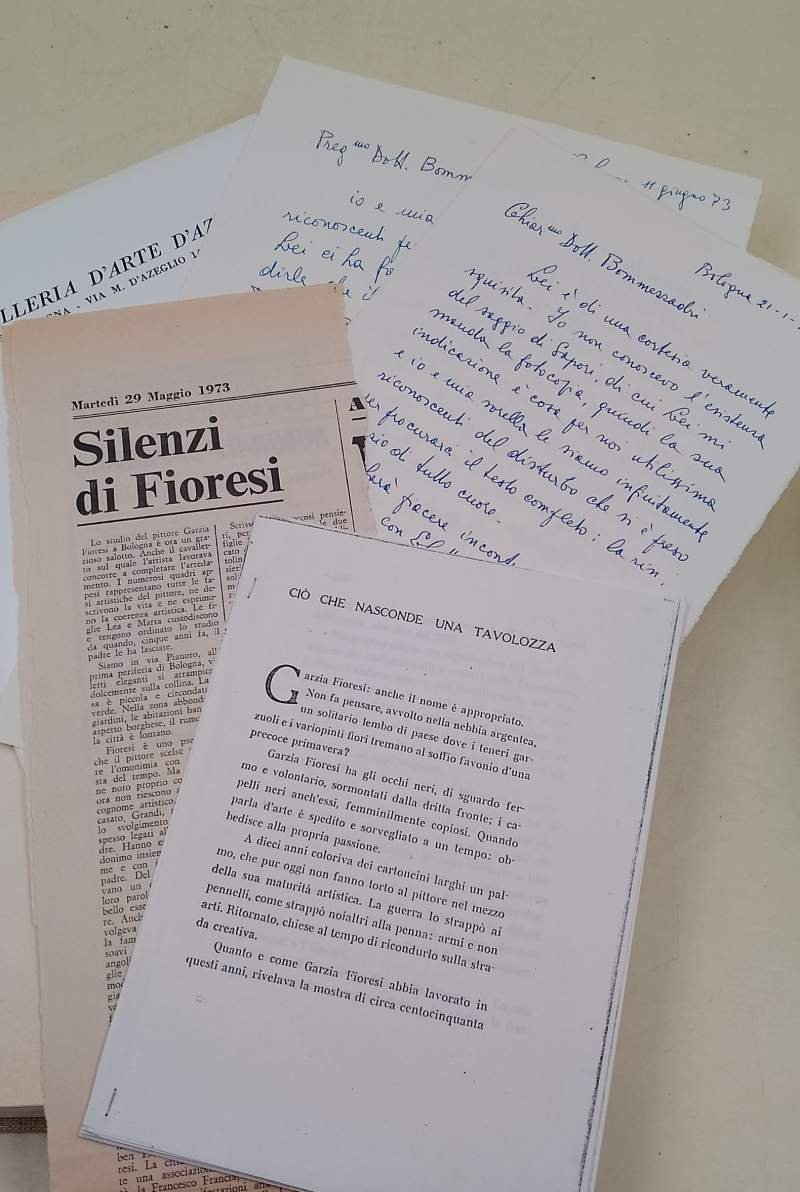 LLERIA D'ARTE D'AZ
GNA - VIA M. D'AZEGLIO 1
Preg.mo Dott. Bomm
11 giugno 73
io e mia
riconoscenti
Lei ci ha
dirle che il
Bologna 21-1-
Chiar.mo Dott. Bommezzadri
Lei è di una cortesia veramente
squisita. Io non conoscevo l'esistenza
del saggio di Sapori, di cui Lei mi
manda la fotocopia, quindi la sua
indicazione è cosa per noi utilissima
e io e mia sorella le siamo infinitamente
riconoscenti del disturbo che si è preso
per procurarci il testo completo: la rin
zio di tutto cuore.
piacere
con
Martedì 29 Maggio 1973
Silenzi
di Fioresi
Lo studio del pittore Garzia
Fioresi a Bologna è ora un gra-
zioso salotto. Anche il cavallet-
to sul quale l'artista lavorava
concorre a completare l'arreda-
mento. I numerosi quadri ap-
pesi rappresentano tutte le fa-
si artistiche del pittore, ne de-
scrivono la vita e ne esprimo-
no la coerenza artistica. Le fi-
glie Lea e Marta custodiscono
e tengono ordinato lo studio
da quando, cinque anni fa, il
padre le ha lasciate.
Siamo in via Pianoro, all
prima periferia di Bologna, vi
letti eleganti si arrampica
dolcemente sulla collina. La
sa è piccola e circondat
verde. Nella zona abbond
giardini, le abitazioni han
aspetto borghese, il rumo
la città è lontano.
Fioresi è uno pse
che il pittore scelse
re l'omonimia con
sta del tempo. Ma
ne noto proprio co
ora non riescono
cognome artistico,
casato, Grandi,
lo svolgimento
spesso legati al
dre. Hanno e
donimo insien
me e con
padre. Del
vano un
loro parol
bello esse
re. Anch
volgeva
la fam
soavi
angoli
glie
mod
gia
ben
resi. La
te una associazio
la Francesco Francia,
CIÒ CHE NASCONDE UNA TAVOLOZZA
Garzia Fioresi: anche il nome è appropriato.
Non fa pensare, avvolto nella nebbia argentea,
un solitario lembo di paese dove i teneri gar-
zuoli e i variopinti fiori tremano al soffio favonio d'una
precoce primavera?
Garzia Fioresi ha gli occhi neri, di sguardo fer-
mo e volontario, sormontati dalla dritta fronte; i ca-
pelli neri anch'essi, femminilmente copiosi. Quando
parla d'arte è spedito e sorvegliato a un tempo: ob-
bedisce alla propria passione.
A dieci anni coloriva dei cartoncini larghi un pal-
mo, che pur oggi non fanno torto al pittore nel mezzo
della sua maturità artistica. La guerra lo strappò ai
pennelli, come strappò noialtri alla penna: armi e non
arti. Ritornato, chiese al tempo di ricondurlo sulla stra-
da creativa.
Quanto e come Garzia Fioresi abbia lavorato in
questi anni, rivelava la mostra di circa centocinquanta